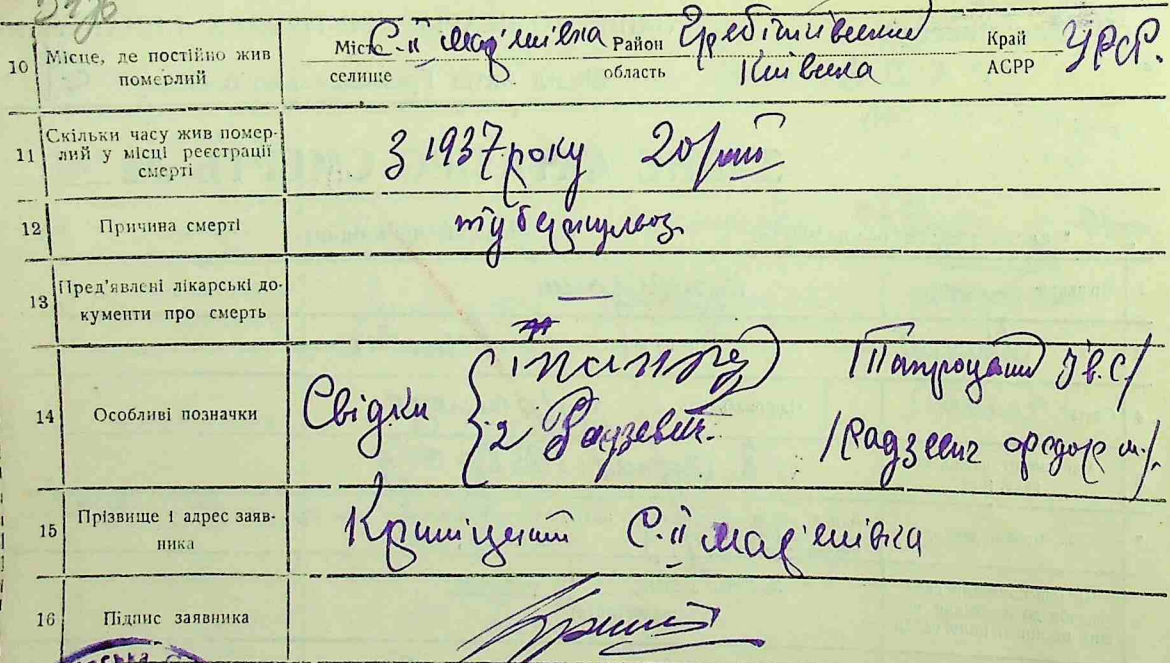 10 Місце, де постійно жив померлий Місто селище С. ІІ Мар'янівка Район область Гребінківський Київська Край АСРР УРСР.
11 Скільки часу жив померлий у місці реєстрації смерті З 1937 року
12 Причина смерті туберкульоз.
13 Пред'явлені лікарські документи про смерть —
14 Особливі позначки Свідки /Папроцький Ів. С/
2 Радзевич. /Радзевич Федор м./.
15 Прізвище і адрес заявника С. ІІ Мар'янівка
16 Підпис заявника